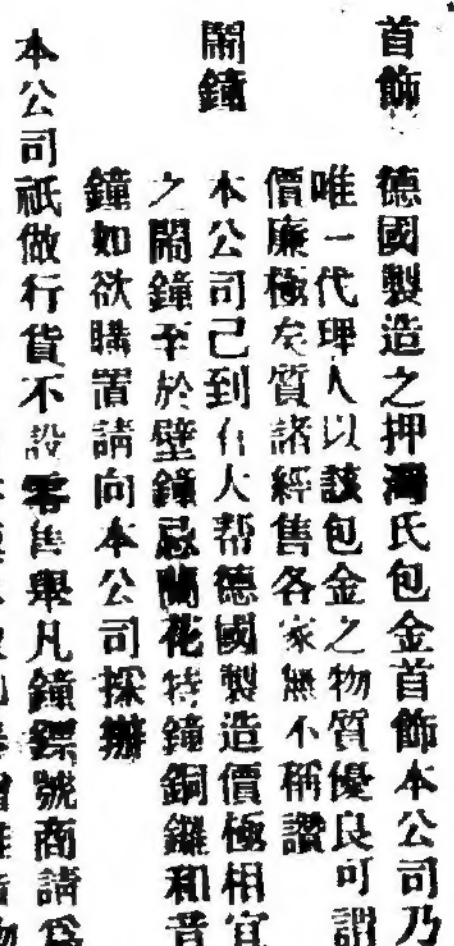 首飾 德國製造之押灣氏包金首飾本公司乃
唯一代理人以該包金之物質優良可謂
價廉極矣質諸經售各家無不稱讚
鬧鐘 本公司已到有大帮德國製造價極相宜
之鬧鐘至於壁鐘忌蘭花特鐘銅鏈和音
鐘如欲購置請向本公司採辦
本公司祇做行貨不設零售舉凡鐘鏢號商請為